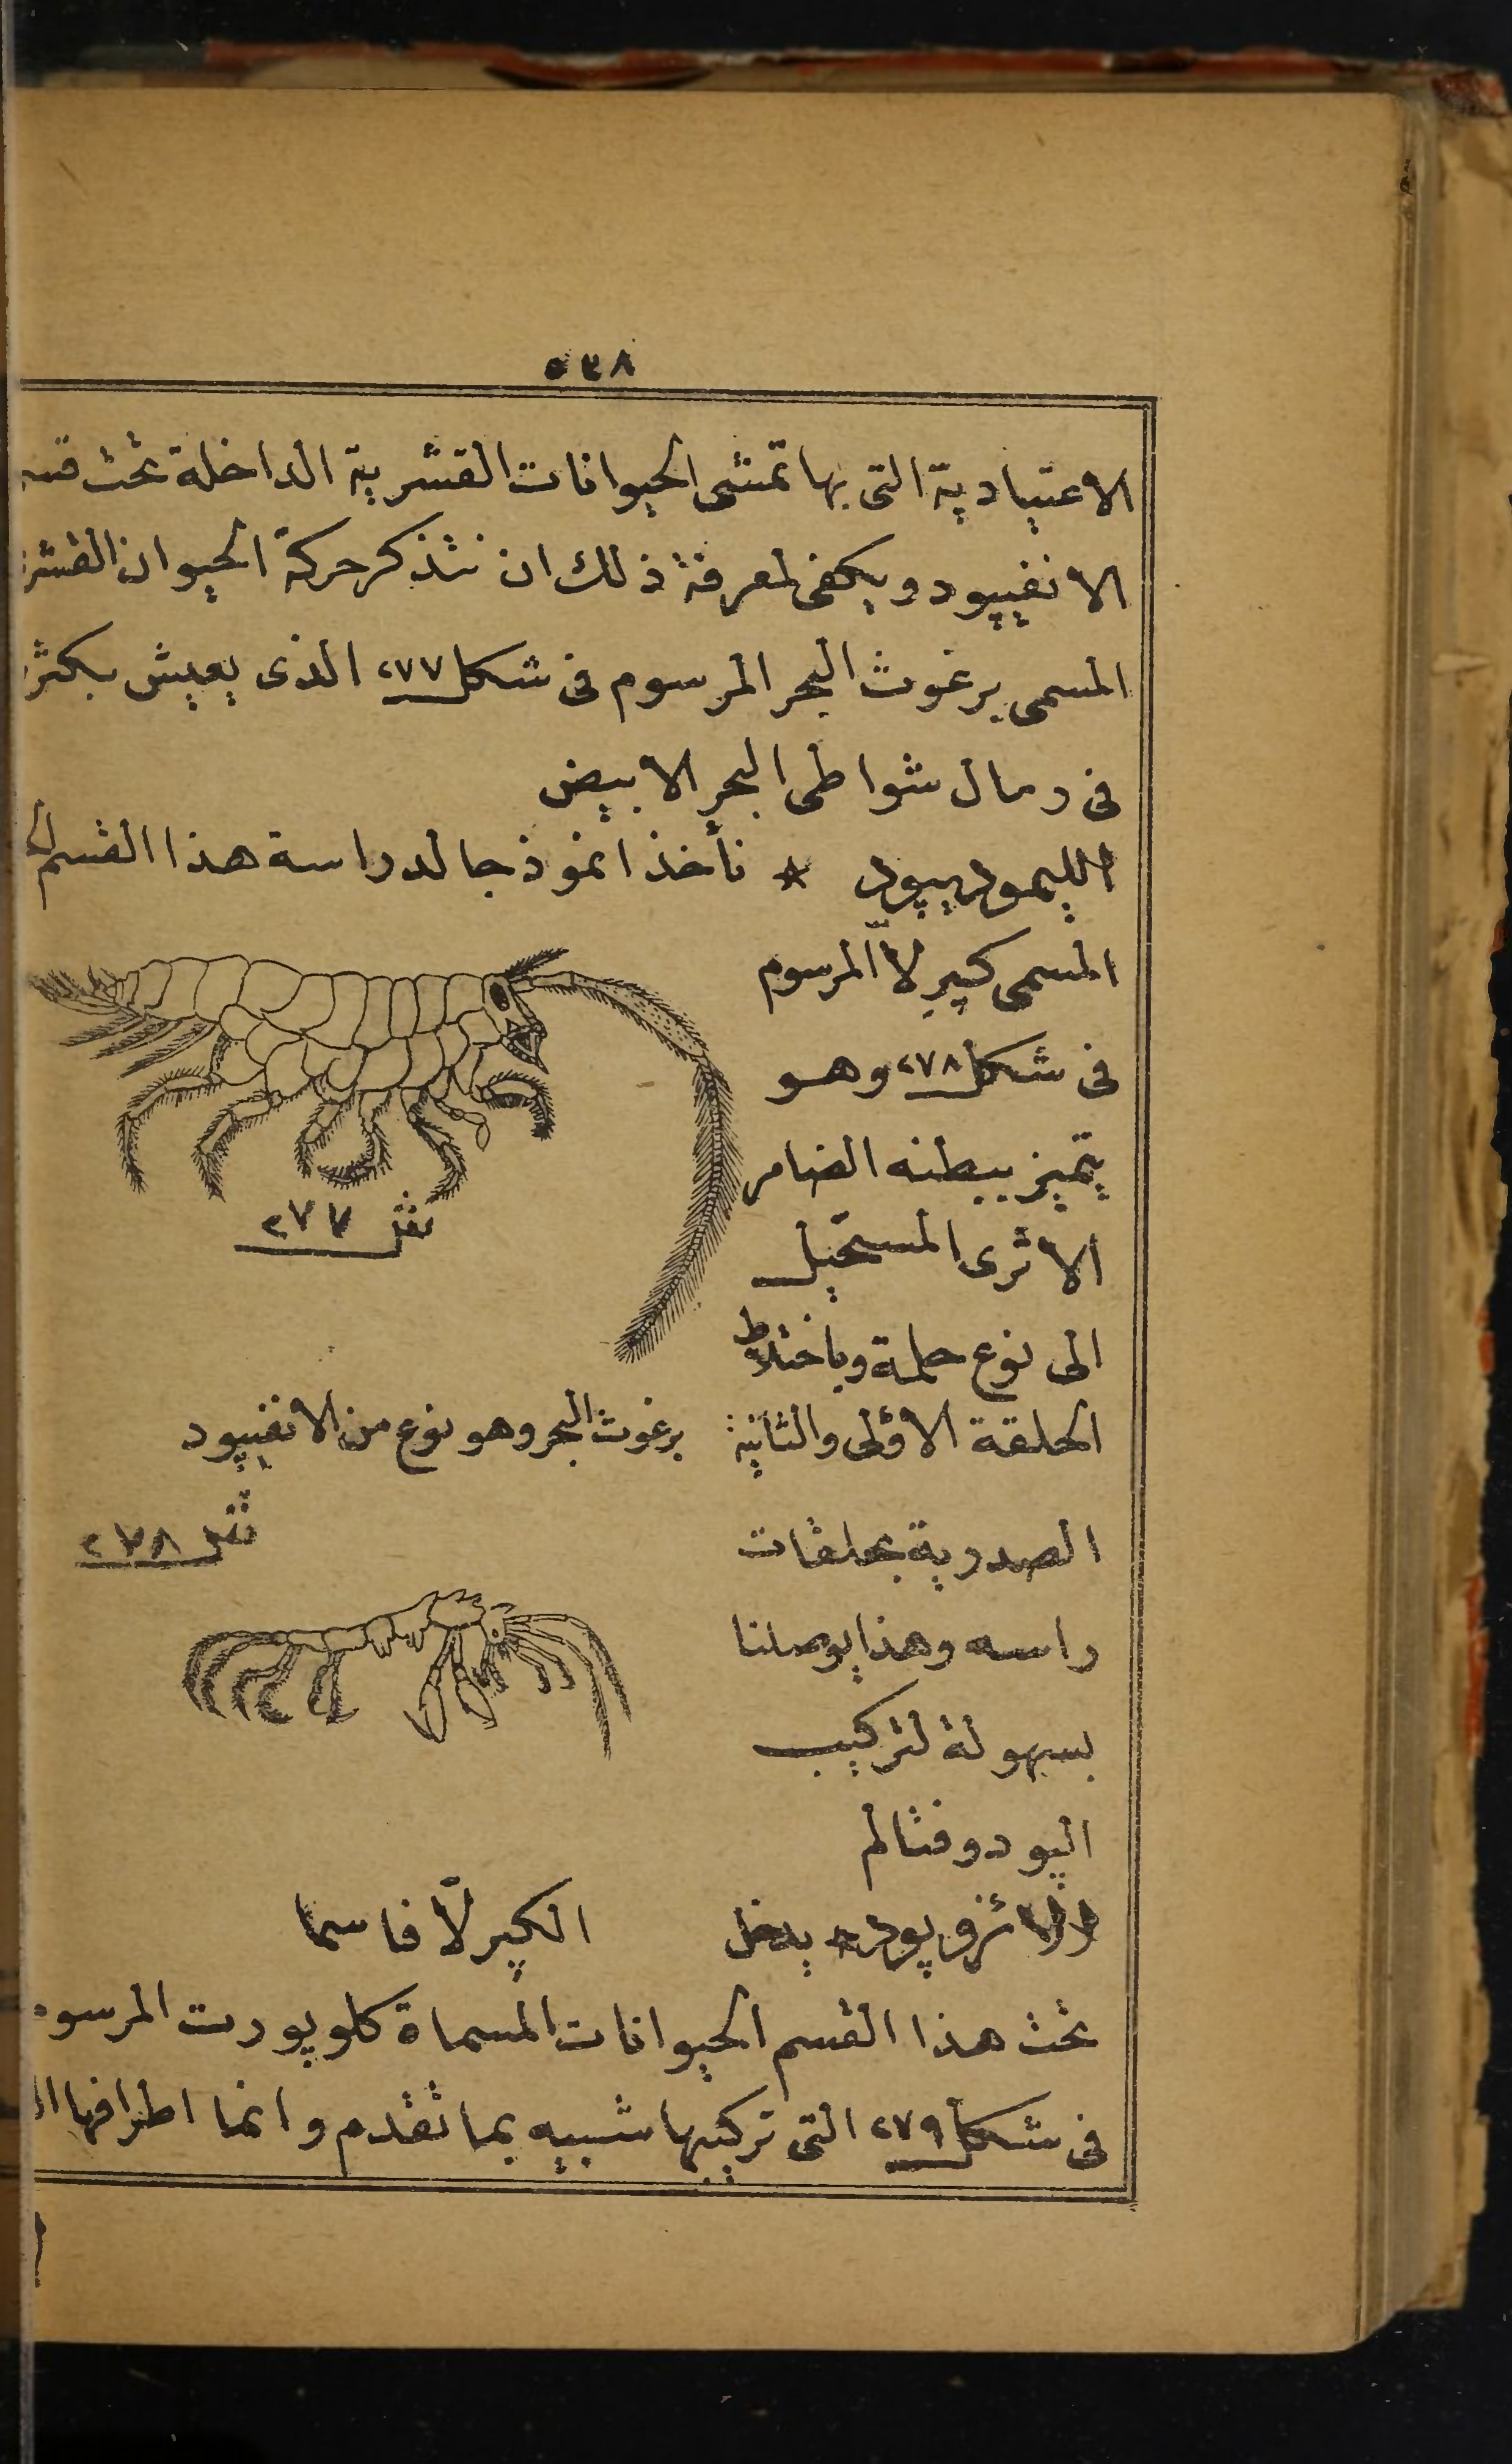 ٥٣٨
الاعتيادية التى بها تمشى الحيوانات القشرية الداخلة تحت
الانفيپود ويكفى لمعرفة ذلك ان نتذكر حركة الحيوان
المسمى برغوث البحر المرسوم فى شكل ٢٧٧ الذى يعيش
فى رمال شواطى البحر الابيض
الليموديپود * نأخذ انموذجا لدراسة هذا القسم
المسمى كپرلاّ المرسوم
فى شكل ٢٧٨ وهو
يتميز ببطنه الضامر
الاثرى المستحيل
الى نوع حلمة وباختلاط
الحلقة الاولى والثانية
الصدرية بحلقات
راسه وهذا يوصلنا
بسهولة لتركيب
الپودوفتالم
شل ٢٧٧
برغوث البحر وهو نوع من الانفيپود
شل ٢٧٨
الكپرلاّ فاسما
الايزوپود * يدخل
تحت هذا القسم الحيوانات المسماة كلوپورت
فى شكل ٢٧٩ التى تركيبها شبيه بما تقدم وانما اطرافها